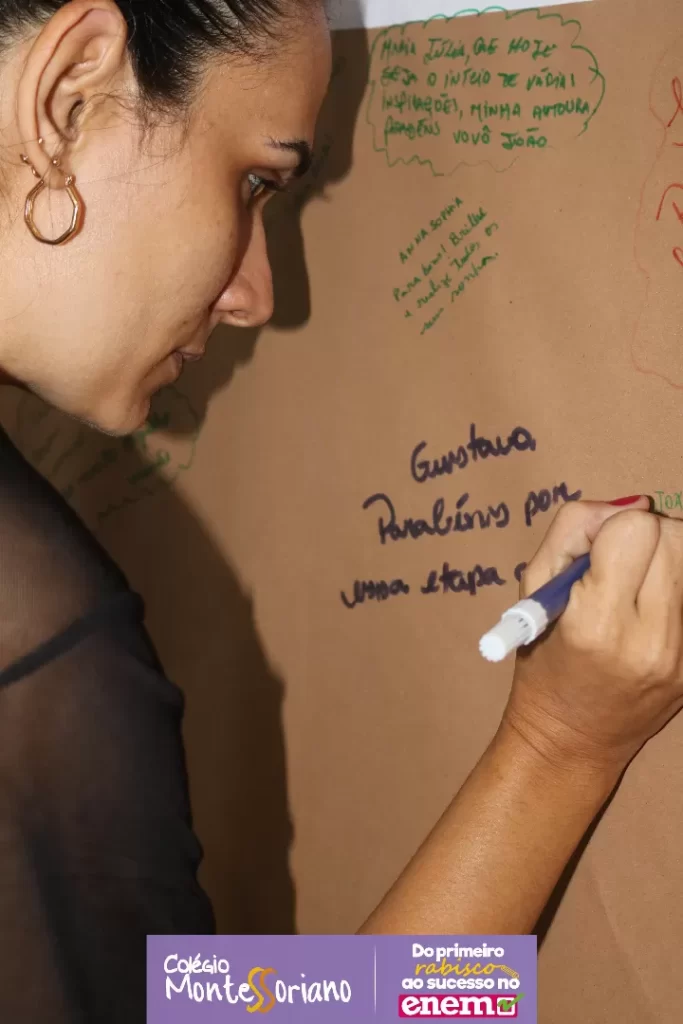 MARIA JÚLIA, QUE HOJE
SEJA O INÍCIO DE VÁRIAS
INSPIRAÇÕES, MINHA AUTOURA
PARABÉNS VOVÔ JOÃO
ANNA SOPHIA
Parabéns! Brilhe
e realize todos os
seus sonhos.
Gustavo
Parabéns por
essa etapa
Colégio
Montessoriano
Do primeiro
rabisco
ao sucesso no
enem